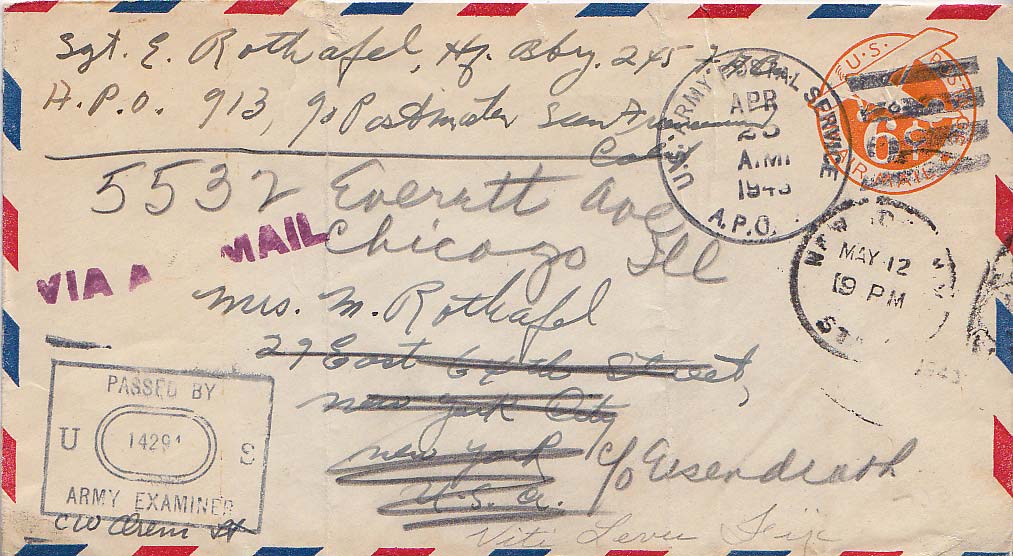 Sgt. E. Rothafel, Hq. Btry. 245
A.P.O. 913, c/o Postmaster San Francisco
Calif
U.S. ARMY POSTAL SERVICE
APR
A.M.
1943
A.P.O.
U.S. POSTAGE
6¢
AIR MAIL
5532 Everett Ave
Chicago Ill
VIA A MAIL
MAY 12
9 PM
1943
Mrs. M. Rothafel
29 East 64th Street,
New York City
New York
U.S.A.
c/o Eisendrath
PASSED BY
U 14291 S
ARMY EXAMINER
Viti Levu Fiji